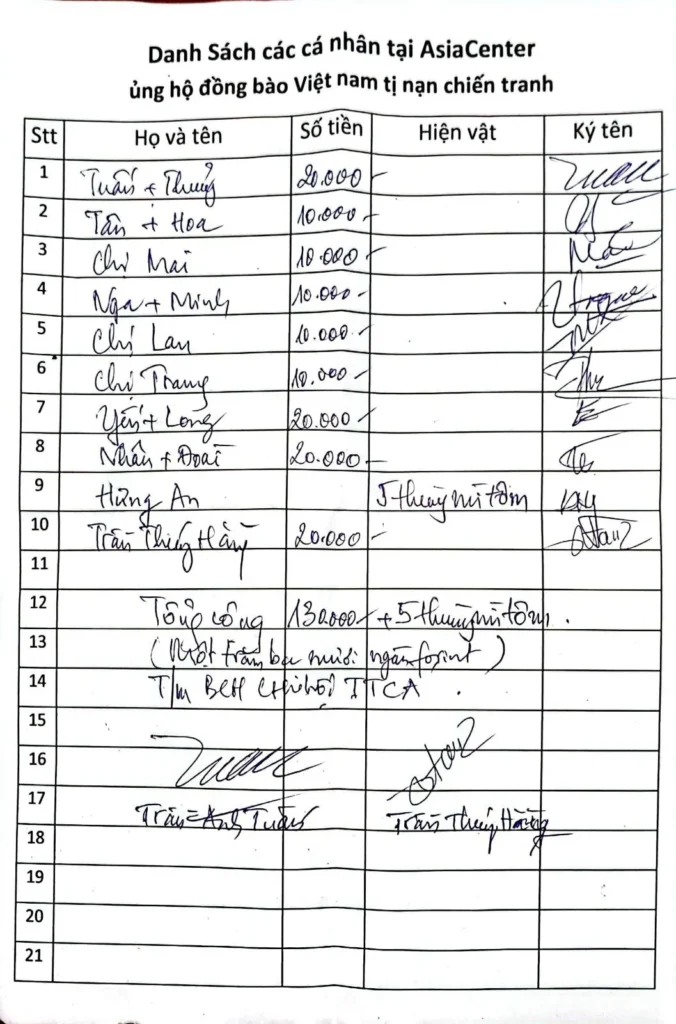 Danh Sách các cá nhân tại AsiaCenter
ủng hộ đồng bào Việt nam tị nạn chiến tranh
Stt Họ và tên Số tiền Hiện vật Ký tên
1 Tuấn + Thuỷ 20.000 Tuan
2 Tân + Hoa 10.000
3 Chị Mai 10.000
4 Nga + Minh 10.000
5 Chị Lan 10.000
6 Chị Trang 10.000
7 Yến + Long 20.000
8 Nhân + Đoài 20.000
9 Hưng An 5 thùng mì tôm
10 Trần Thuý Hằng 20.000
11
12 Tổng cộng 130.000 + 5 thùng mì tôm.
13 (Một trăm ba mươi ngàn forint)
14 T/m BCH Chi hội TTCA.
15
16
17 Trần Anh Tuấn Trần Thuý Hằng
18
19
20
21